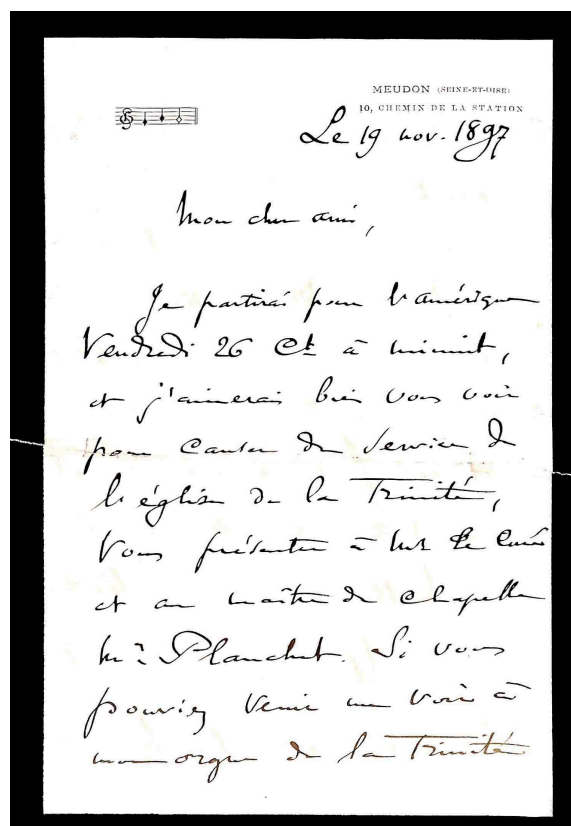 MEUDON (SEINE-ET-OISE)
10, CHEMIN DE LA STATION
Le 19 nov. 1897
Mon cher ami,
Je partirai pour l'amérique
Vendredi 26 Ct à minuit,
et j'aimerais bien vous voir
pour causer du service de
l'église de la Trinité,
Vous présenter à Mr le Curé
et au maître de chapelle
Mr Planchet. Si vous
pouviez venir me voir à
mon orgue de la Trinité